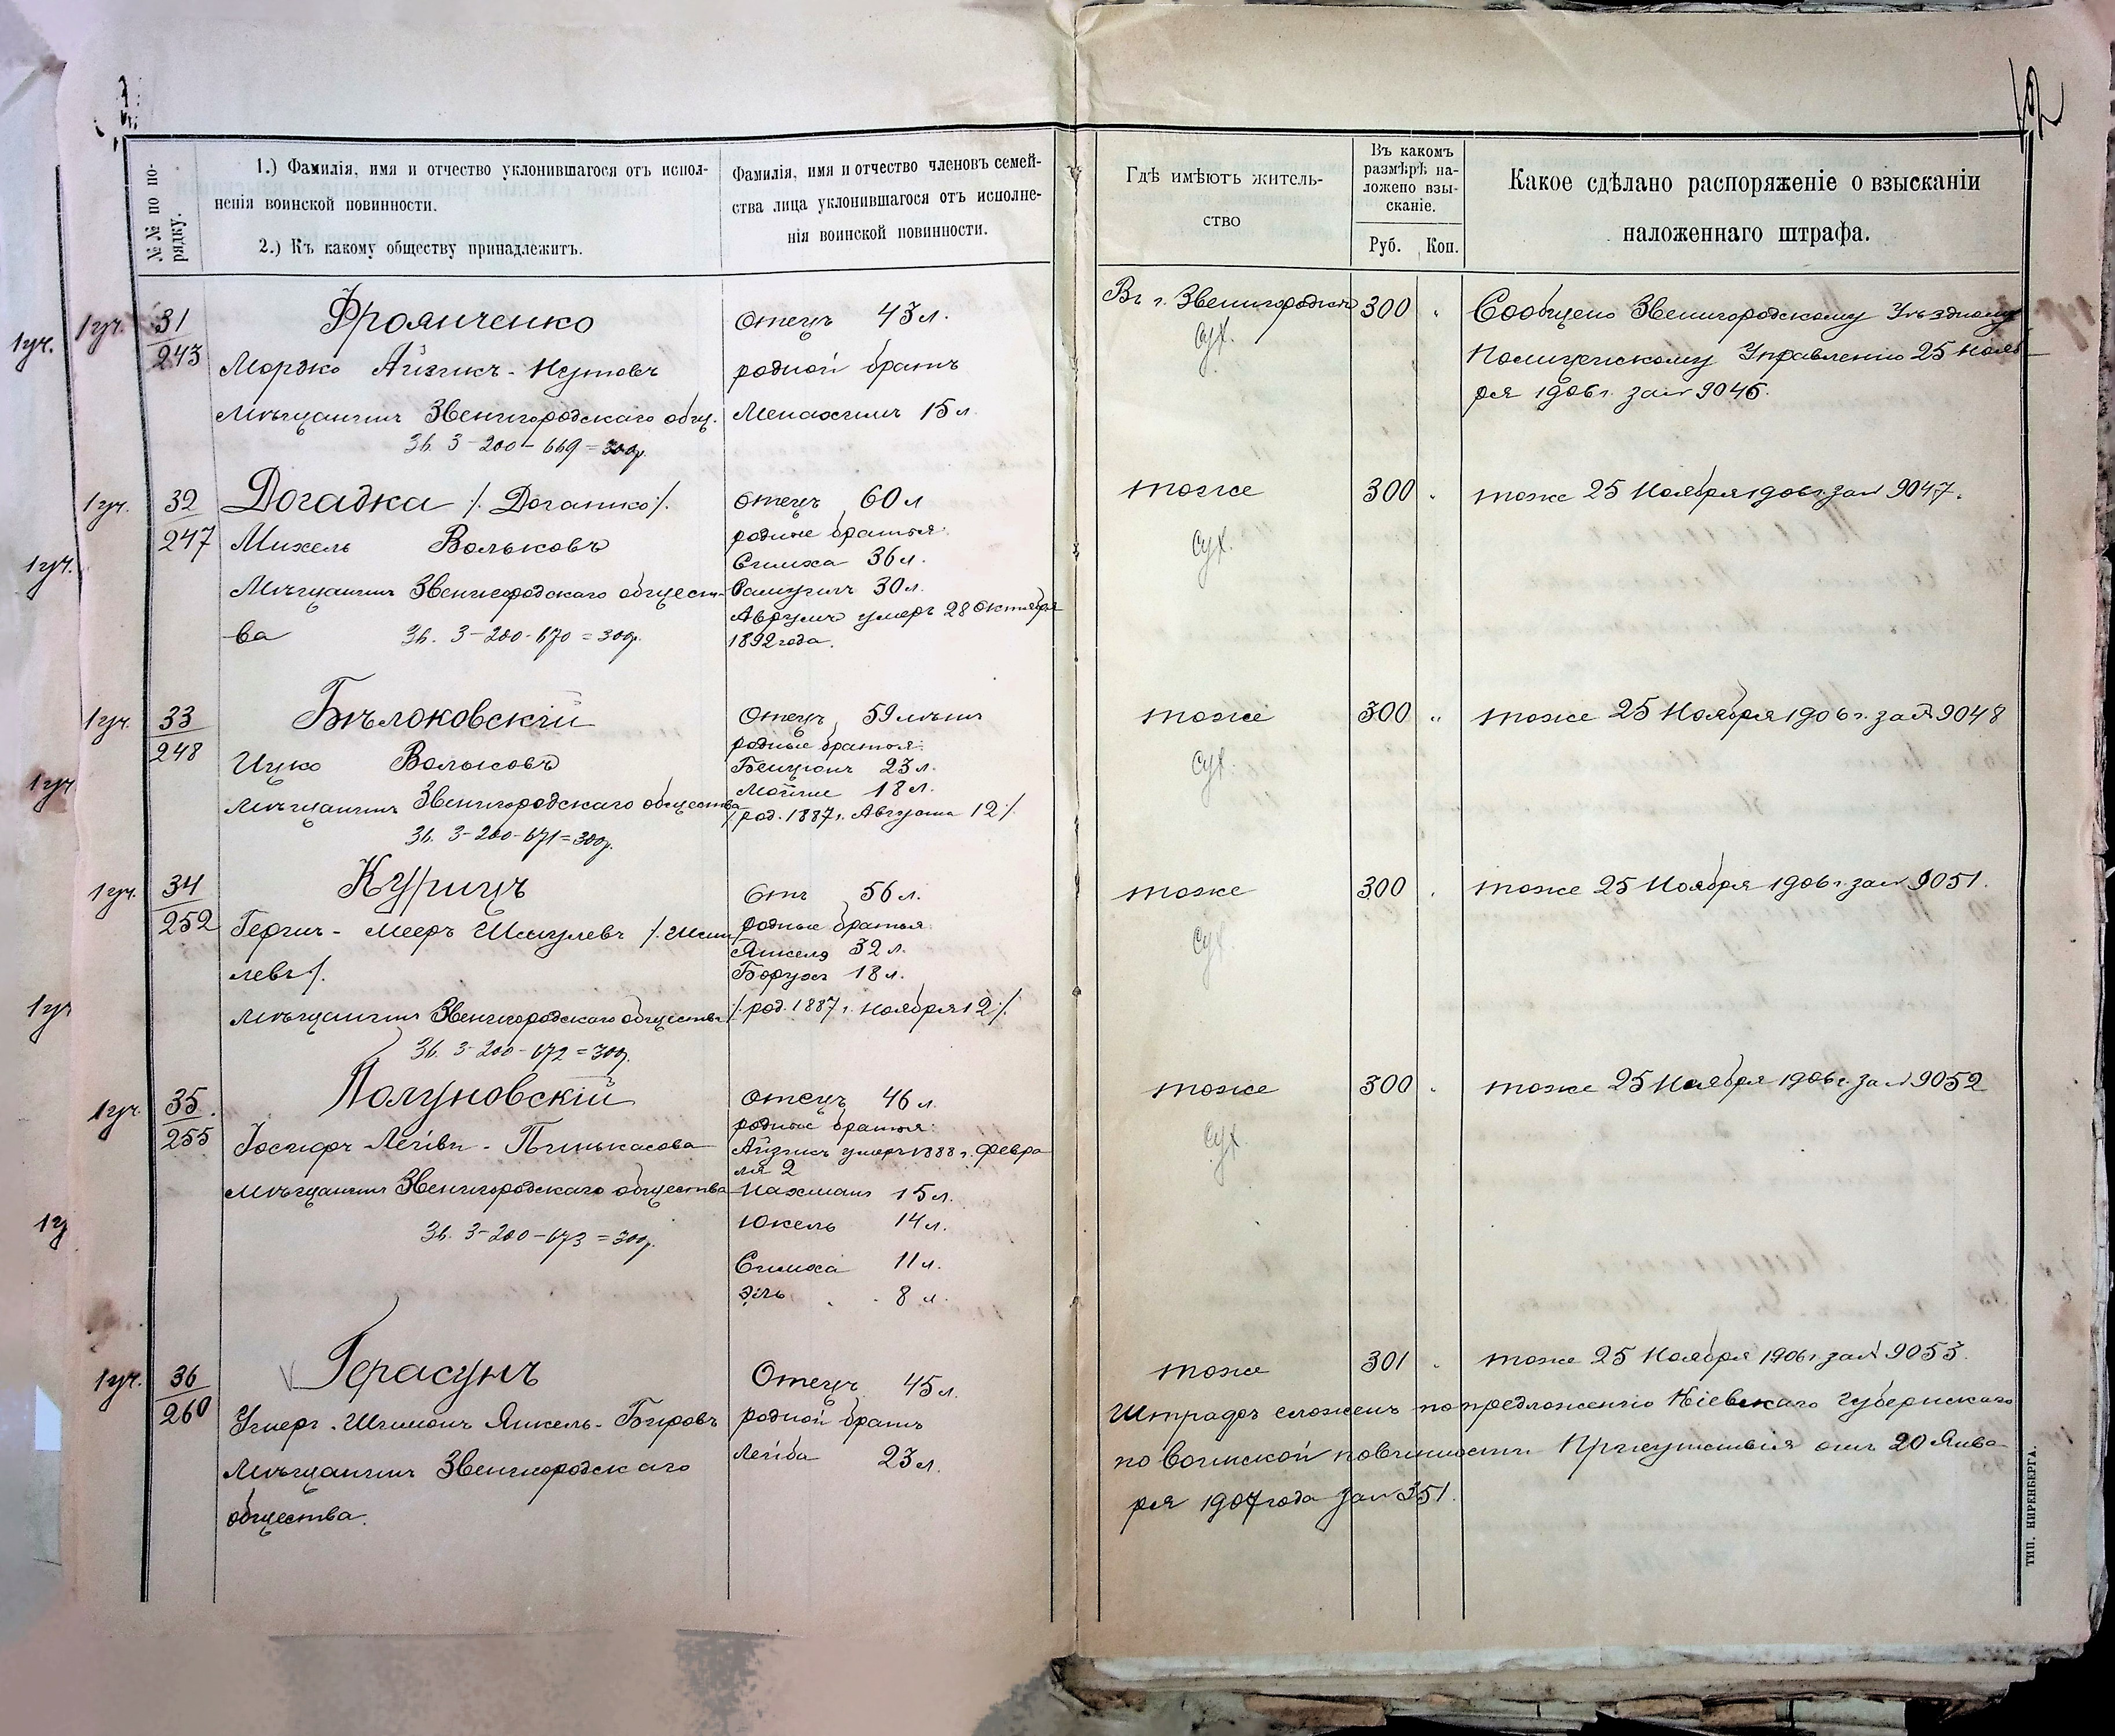 № № по по-
рядку.
1.) Фамилія, имя и отчество уклонившагося отъ испол-
ненія воинской повинности.
2.) Къ какому обществу принадлежитъ.
Фамилія, имя и отчество членовъ семей-
ства лица уклонившагося отъ исполне-
нія воинской повинности.
Гдѣ имѣютъ житель-
ство
Въ какомъ
размѣрѣ на-
ложено взы-
сканіе.
Руб. Коп.
Какое сдѣлано распоряженіе о взысканіи
наложеннаго штрафа.
1 уч.
1 уч.
31
243
Фроянченко
Мордко Айзикъ-Нутовъ
Мѣщанинъ Звенигородскаго общ.
Зв. 3-200-669=300р.
Отецъ 43 л.
родной братъ
Менахимъ 15 л.
Въ г. Звенигородкѣ
Сух.
300 "
Сообщено Звенигородскому Уѣздному
Полицейскому Управленію 25 Нояб-
ря 1906 г. за № 9046.
1 уч.
1 уч.
32
247
Догадка /. Доганко/.
Михель Вольковъ
Мѣщанинъ Звенигородскаго общест-
ва
Зв. 3-200-670=300р.
Отецъ 60 л
родные братья:
Симха 36 л.
Самуилъ 30 л.
Аврумъ умеръ 28 Октября
1892 года.
тоже
Сух.
300 "
тоже 25 Ноября 1906 г. за № 9047.
1 уч.
1 уч
33
248
Бѣлоковскій
Ицко Вольковъ
Мѣщанинъ Звенигородскаго общества
Зв. 3-200-671=300р.
Отецъ 59 лѣтъ
родные братья:
Бенціонъ 23 л.
Мойше 18 л.
/род. 1887 г. Августа 12/.
тоже
Сух.
300 "
тоже 25 Ноября 1906 г. за № 9048
1 уч.
1 уч
34
252
Курицъ
Гершъ-Мееръ Шмулевъ /.Шми
левъ/.
мѣщанинъ Звенигородскаго общества
Зв. 3-200-672=300р.
Отц 56 л.
родные братья:
Янкель 32 л.
Борухъ 18 л.
/.род. 1887 г. Ноября 12/.
тоже
Сух.
300 "
тоже 25 Ноября 1906 г. за № 9051.
1 уч.
1 у
35.
255
Полуновскій
Іосифъ Лейви-Пинькасова
Мѣщанинъ Звенигородскаго общества
Зв. 3-200-673=300р.
Отецъ 46 л.
родные братья:
Айзикъ умеръ 1888 г. Февра
ля 2
Нахманъ 15 л.
Юкель 14 л.
Симха 11 л.
Эль 8 л.
тоже
Сух.
300 "
тоже 25 Ноября 1906 г. за № 9052
1 уч.
36
260
Герасунъ
Шимонъ Янкель-Беровъ
Мѣщанинъ Звенигородскаго
общества.
Отецъ 45 л.
родной братъ
Лейба 23 л.
тоже
301 "
тоже 25 Ноября 1906 г за № 9053.
Штрафъ сложенъ по предложенію Кіевскаго Губернскаго
по воинской повинности Присутствія отъ 20 Янва-
ря 1907 года за № 351.
ТИП. НИРЕНБЕРГА.